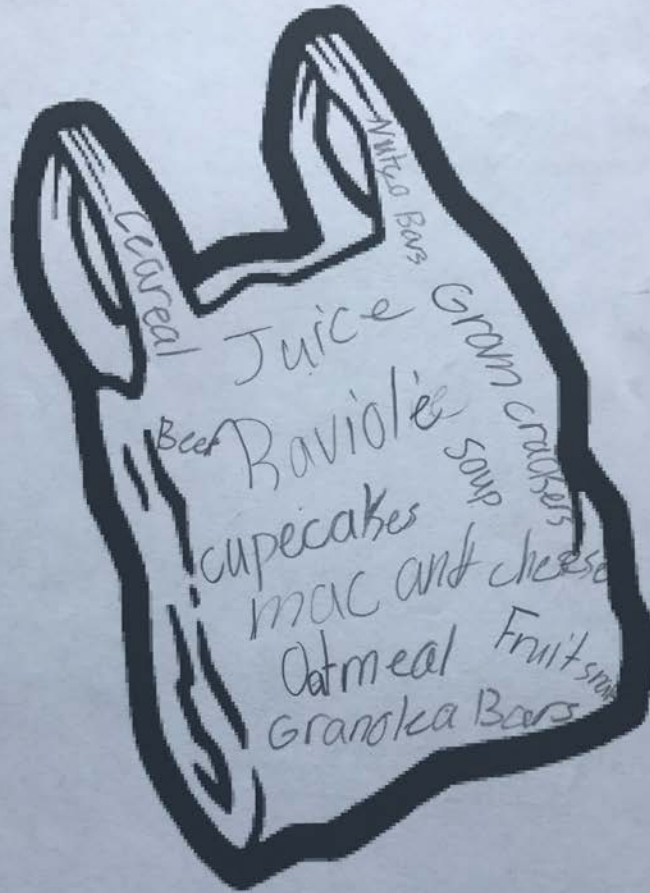 Ceareal
Nutra Bars
Juice
Gram crackers
Beef Raviolie
soup
cupecakes
mac and cheese
Oatmeal
Fruit
Granolea Bears